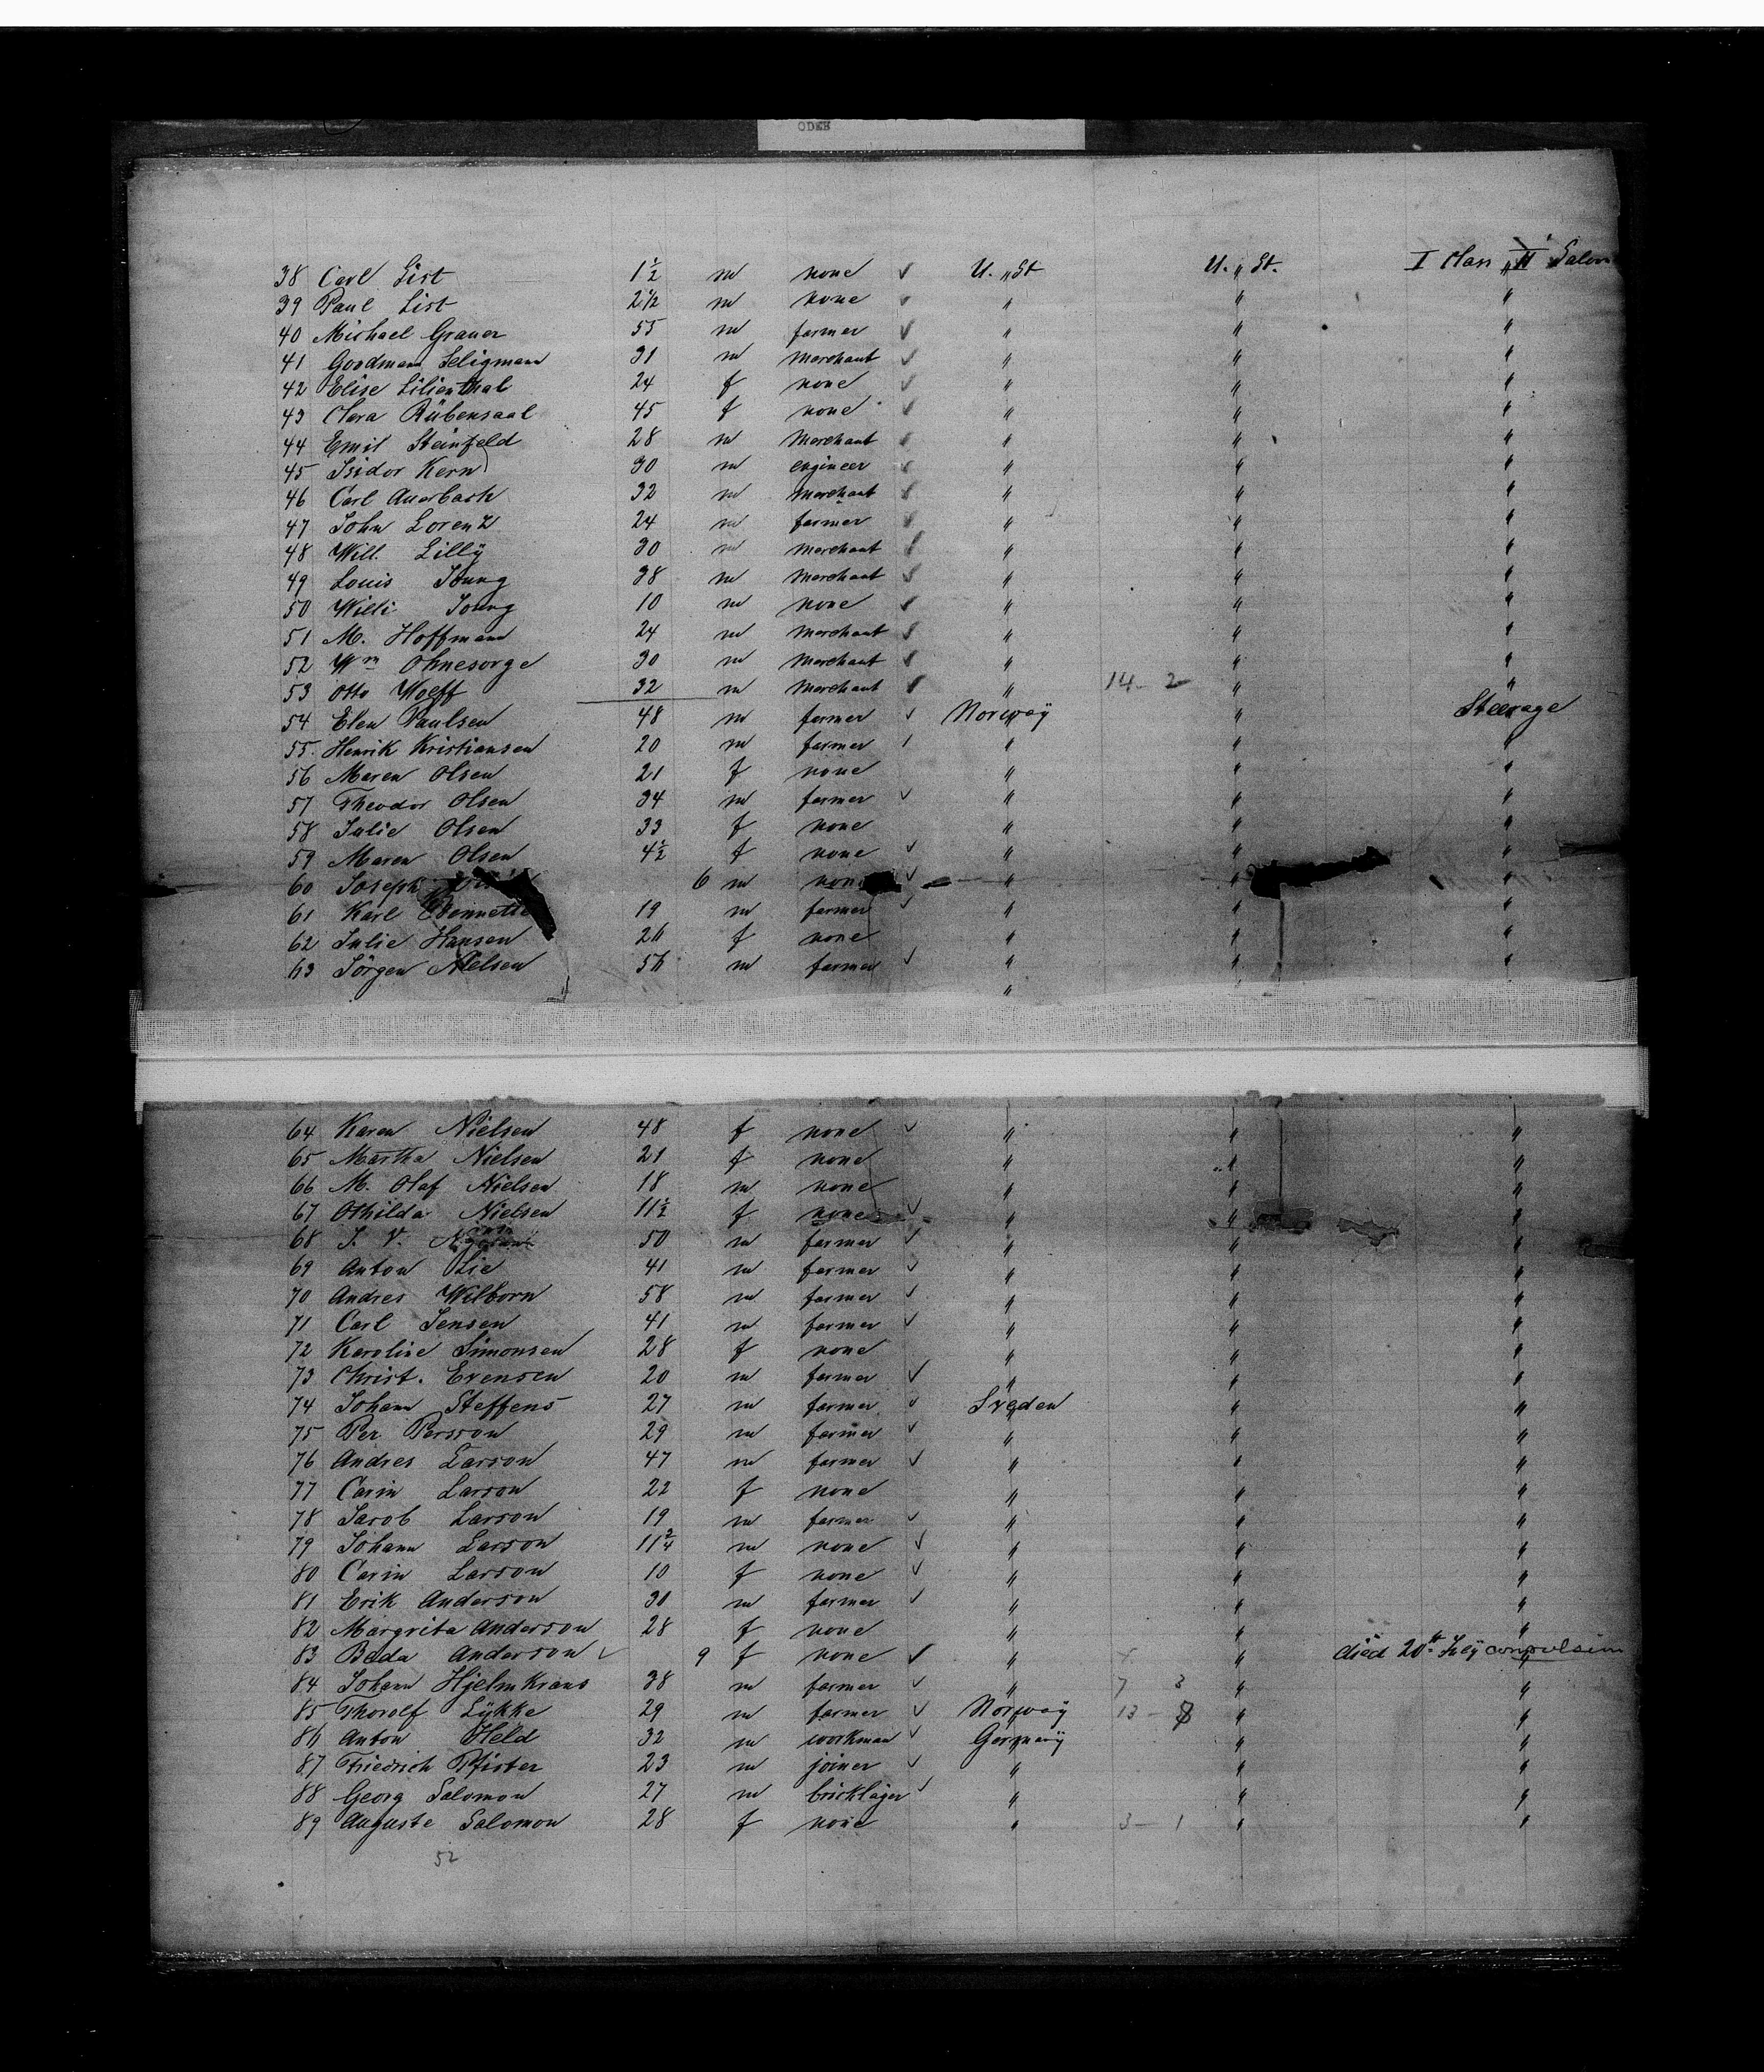 ODER
38 Carl List 1½ m none ✓ U. „ St U. „ St. I Class „ II Salon
39 Paul List 2½ m none ✓ " " "
40 Michael Grauer 55 m farmer ✓ " " "
41 Goodman Seligmann 31 m merchant ✓ " " "
42 Elise Lilienthal 24 f none ✓ " " "
43 Clara Rübensaal 45 f none ✓ " " "
44 Emil Steinfeld 28 m merchant ✓ " " "
45 Isidor Kern 30 m engineer ✓ " " "
46 Carl Auerbach 32 m merchant ✓ " " "
47 John Lorenz 24 m farmer ✓ " " "
48 Will. Lilly 30 m merchant ✓ " " "
49 Louis Joung 38 m merchant ✓ " " "
50 Willi Joung 10 m none ✓ " " "
51 M. Hoffmann 24 m merchant ✓ " " "
52 Wm Ohnesorge 30 m merchant ✓ " " "
53 Otto Wolff 32 m merchant ✓ " 14 - 2 " "
54 Elen Paulsen 48 m farmer ✓ Norway " Steerage
55 Henrik Kristiansen 20 m farmer ✓ " " "
56 Maren Olsen 21 f none " " "
57 Theodor Olsen 34 m farmer ✓ " " "
58 Julie Olsen 33 f none " " "
59 Maren Olsen 4½ f none ✓ " " "
60 Joseph 6 m none ✓ " "
61 Karl 19 m farmer ✓ " " "
62 Julie Hansen 26 f none " " "
63 Jörgen Nielsen 56 m farmer ✓ " " "
"
64 Karen Nielsen 48 f none ✓ " " "
65 Martha Nielsen 21 f none " " "
66 M. Olaf Nielsen 18 m none " " "
67 Othilda Nielsen 11½ f none ✓ " " "
68 J. V. 50 m farmer ✓ " " "
69 Anton Lie 41 m farmer ✓ " " "
70 Andres Wilborn 58 m farmer ✓ " " "
71 Carl Jensen 41 m farmer ✓ " " "
72 Karoline Simonsen 28 f none " " "
73 Christ. Evensen 20 m farmer ✓ " " "
74 Johann Steffens 27 m farmer ✓ Sveden " "
75 Per Persson 29 m farmer ✓ " " "
76 Andres Larson 47 m farmer ✓ " " "
77 Carin Larson 22 f none " " "
78 Jacob Larson 19 m farmer ✓ " " "
79 Johann Larson 11¾ m none ✓ " " "
80 Carin Larson 10 f none ✓ " " "
81 Erik Anderson 30 m farmer ✓ " " "
82 Margrita Anderson 28 f none " " "
83 Beda Anderson ✓ 9 f none ✓ " " died 20th July convulsion
84 Johann Hjelmkrans 38 m farmer ✓ " 7 3 " "
85 Thorolf Lykke 29 m farmer ✓ Norway 13 - " "
86 Anton Held 32 m workman ✓ Germany " "
87 Friedrich Pfister 23 m joiner ✓ " " "
88 Georg Salomon 27 m bricklager ✓ " " "
89 Auguste Salomon 28 f none " 3 - 1 " "
52